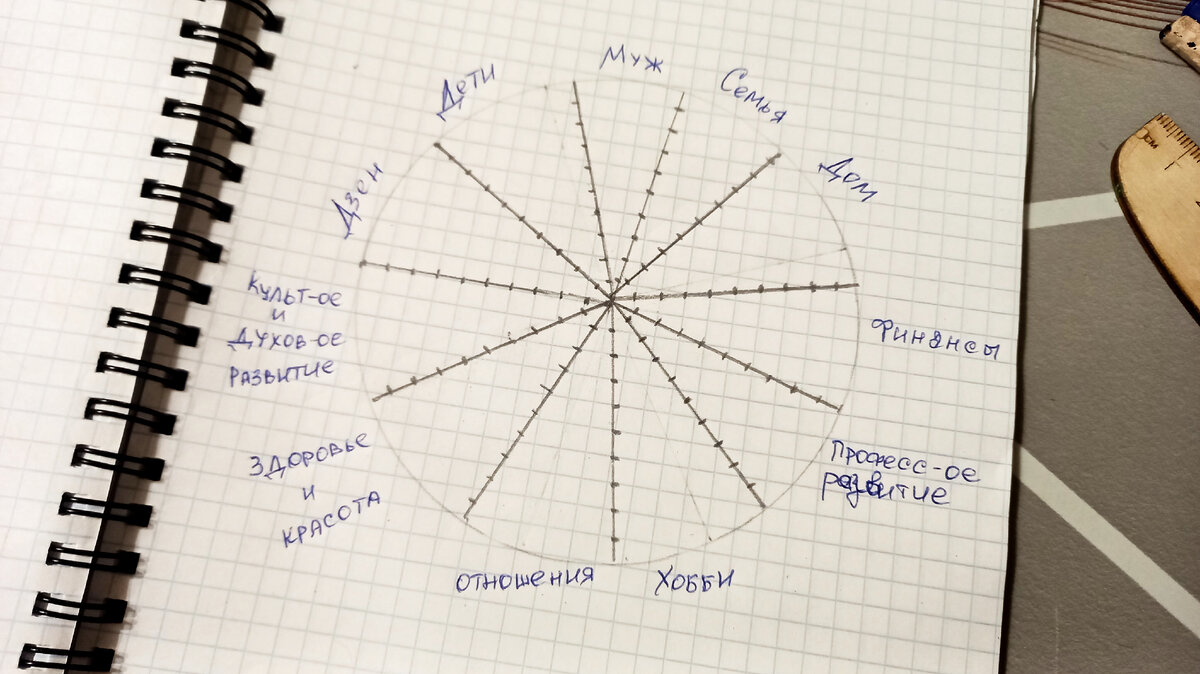 Муж
Семья
Дом
Финансы
Професс-ое
развитие
Хобби
отношения
Здоровье
и
красота
Культ-ое
и
духов-ое
развитие
Дзен
Дети